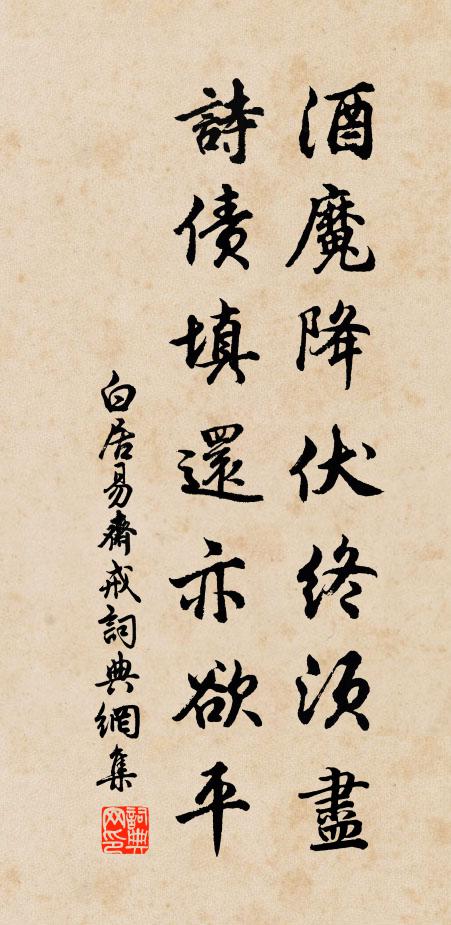 酒魔降伏終須盡
詩債填還亦欲平
白居易齋戒詞典網集
詞典網印